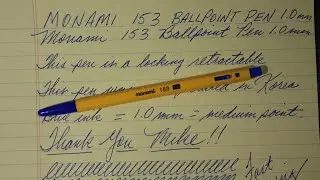 MONAMI 153 BALLPOINT PEN 1.0mm
Monami 153 Ballpoint Pen 1.0mm
This pen is a locking retractable
This pen in Korea
Blue ink = 1.0mm = medium point.
monami 153
Thank You Mike!!
Fast